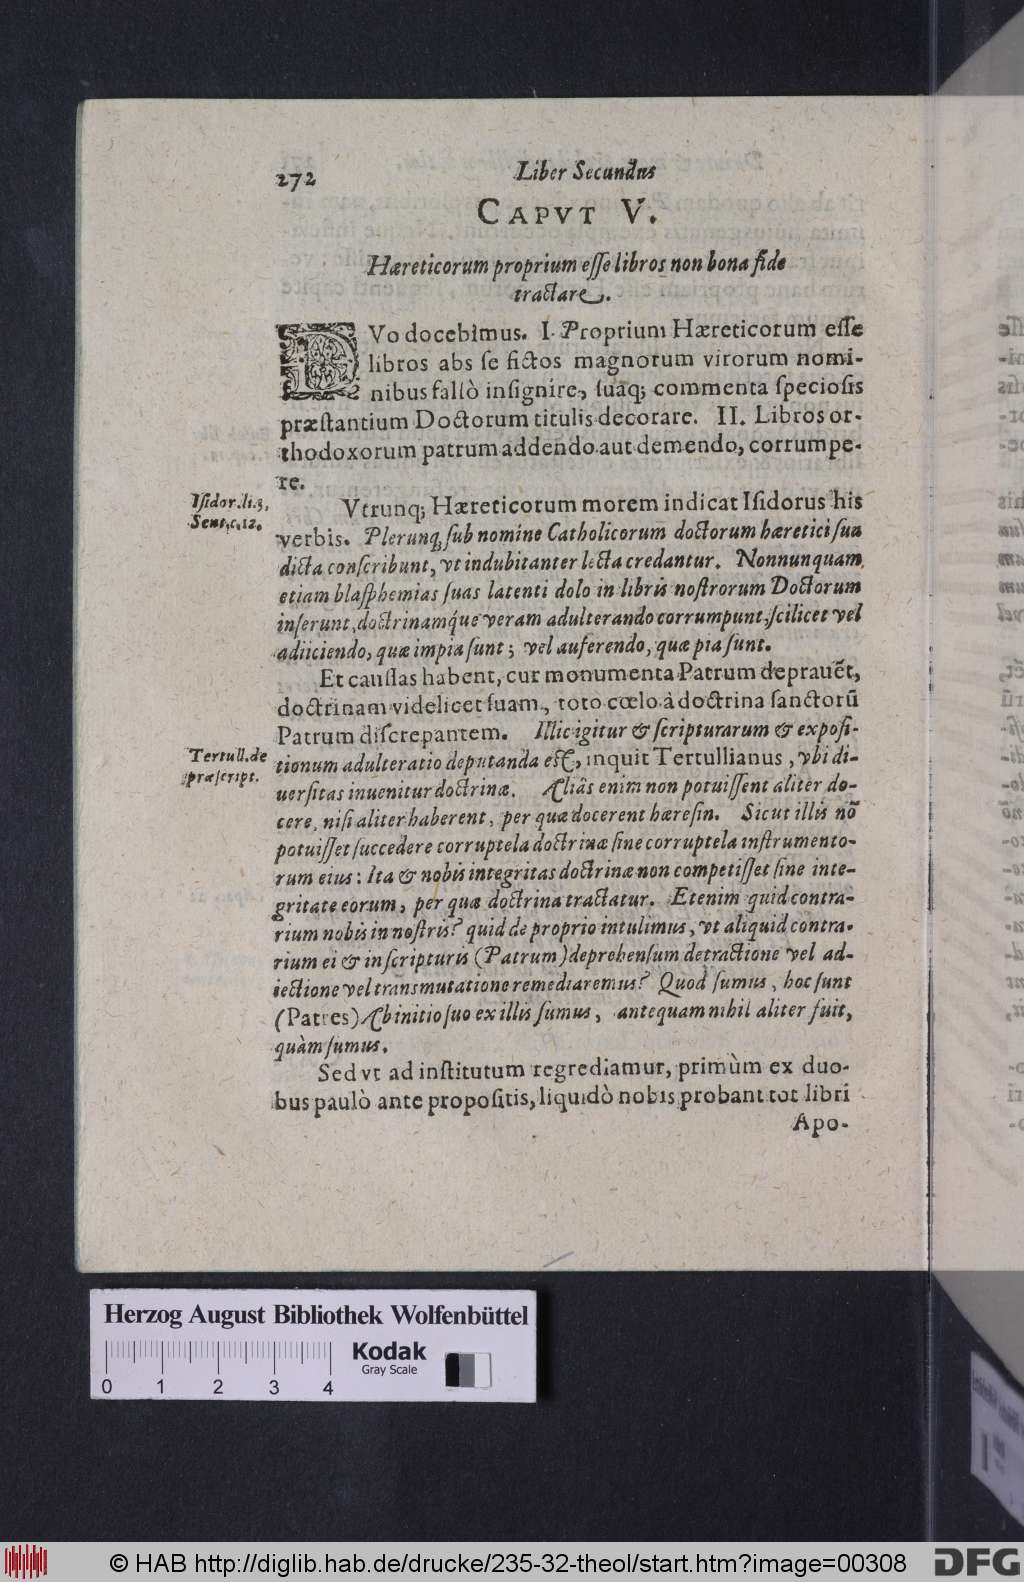 272 Liber Secundus
CAPVT V.
Hæreticorum proprium esse libros non bona fide
tractare.
DVo docebimus. I. Proprium Hæreticorum esse
libros abs se fictos magnorum virorum nomi-
nibus falsò insignire, suaq; commenta speciosis
præstantium Doctorum titulis decorare. II. Libros or-
thodoxorum patrum addendo aut demendo, corrumpe-
re.
Isidor. li. 3.
Sent. c. 12.
Vtrunq; Hæreticorum morem indicat Isidorus his
verbis. Plerunq; sub nomine Catholicorum doctorum hæretici sua
dicta conscribunt, vt indubitanter lecta credantur. Nonnunquam
etiam blasphemias suas latenti dolo in libris nostrorum Doctorum
inserunt, doctrinamq́ue veram adulterando corrumpunt, scilicet vel
adiiciendo, quæ impia sunt; vel auferendo, quæ pia sunt.
Et caussas habent, cur monumenta Patrum deprauēt,
doctrinam videlicet suam, toto cœlo à doctrina sanctorū
Patrum discrepantem. Illic igitur & scripturarum & exposi-
Tertull. de
præscript.
tionum adulteratio deputanda est, inquit Tertullianus, vbi di-
uersitas inuenitur doctrinæ. Aliâs enim non potuissent aliter do-
cere, nisi aliter haberent, per quæ docerent hæresin. Sicut illis nō
potuisset succedere corruptela doctrinæ sine corruptela instrumento-
rum eius: Ita & nobis integritas doctrinæ non competisset sine inte-
gritate eorum, per quæ doctrina tractatur. Etenim quid contra-
rium nobis in nostris? quid de proprio intulimus, vt aliquid contra-
rium ei & in scripturis (Patrum) deprehensum detractione vel ad-
iectione vel transmutatione remediaremus? Quod sumus, hoc sunt
(Patres) Ab initio suo ex illis sumus, antequam nihil aliter fuit,
quàm sumus.
Sed vt ad institutum regrediamur, primùm ex duo-
bus paulò ante propositis, liquidò nobis probant tot libri
Apo-
Herzog August Bibliothek Wolfenbüttel
Kodak
Gray Scale
0 1 2 3 4
© HAB http://diglib.hab.de/drucke/235-32-theol/start.htm?image=00308
DFG